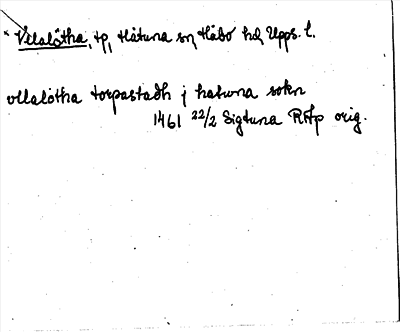 * Vllalôtha, tp, Håtuna sn Håbo hd Upps. l.
vllalôtha torpastadh j hatwna sokn
1461 22/2 Sigtuna RAp orig.